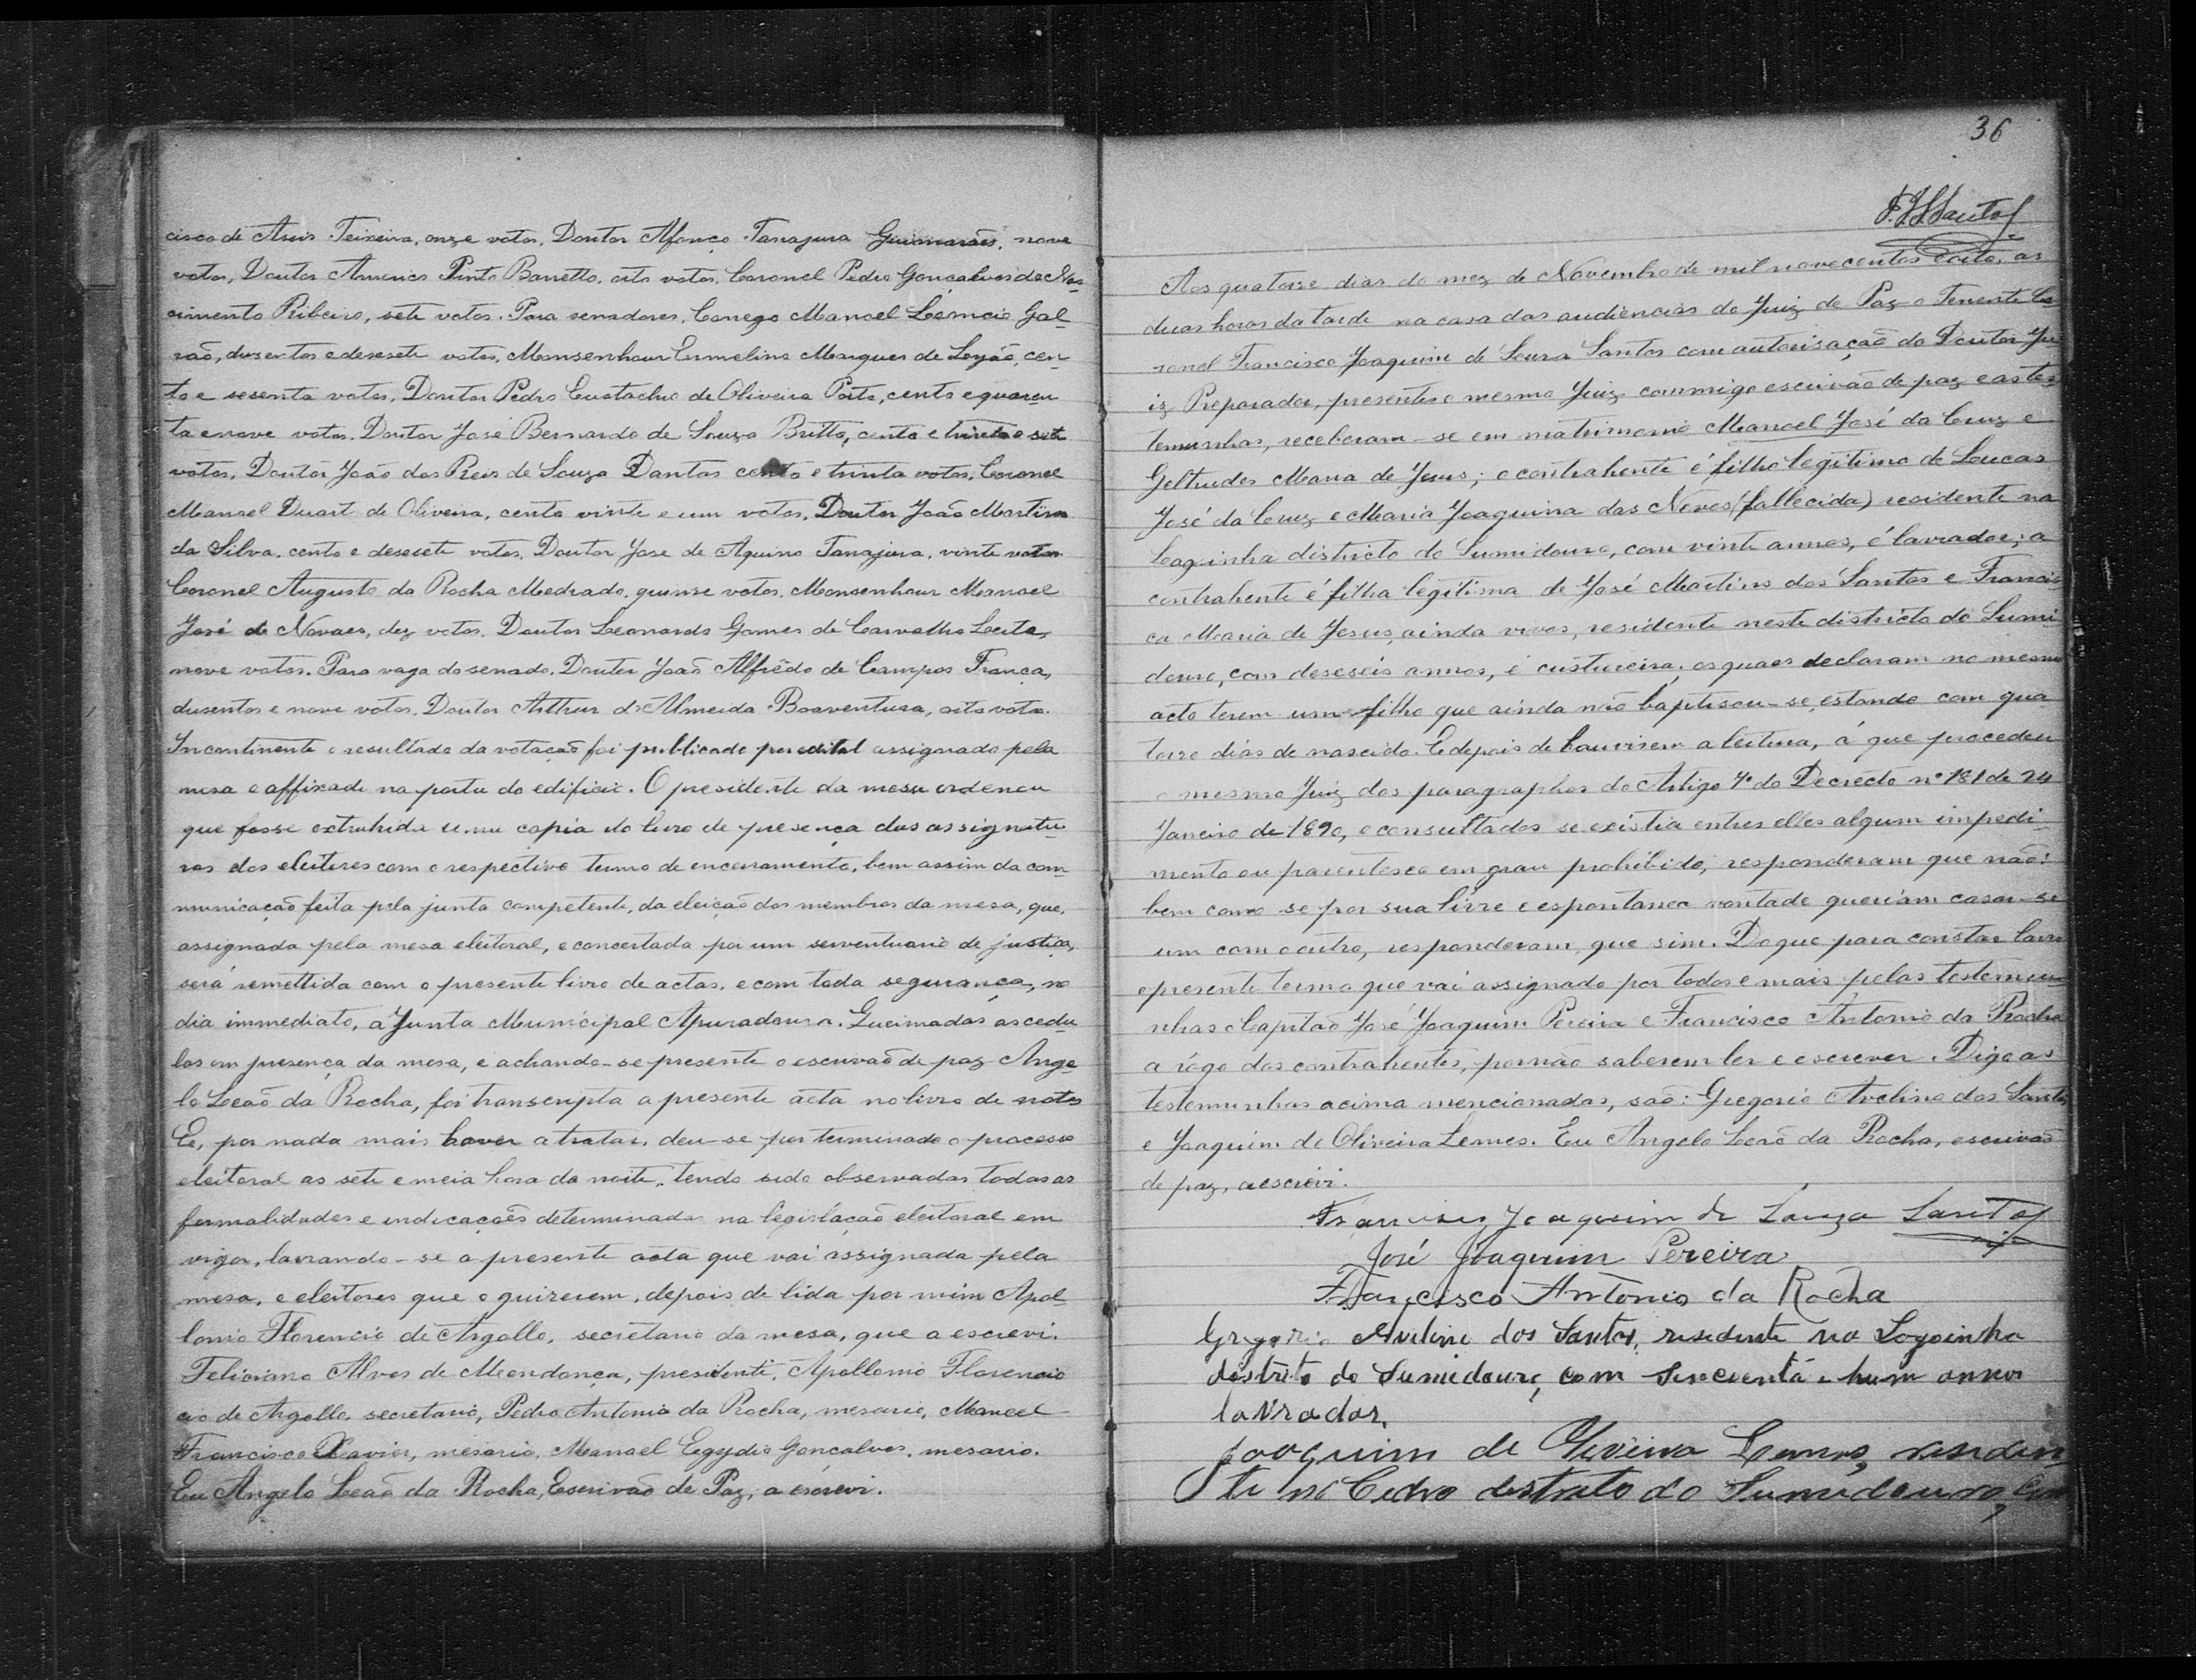 cisco de Assis Teixeira, onze votos, Doutor Afonço Tanajura Guimarães, nove
votos, Doutor Americo Pinto Barretto, oito votos, Coronel Pedro Gonçalves do Nas-
cimento Ribeiro, sete votos. Para senadores, Conego Manoel Leoncio Gal-
vão, dusentos e desesete votos, Monsenhour Ermelino Marques de Leyão, cen-
to e sesenta votos, Doutor Pedro Eustachio de Oliveira Porto, cento e quaren
ta e nove votos, Doutor José Bernardo de Souza Britto, cento e trinta e sete
votos, Doutor João dos Reis de Souza Dantas cento e trinta votos, Coronel
Manoel Duart de Oliveira, cento vinte e um votos, Doutor João Martins
da Silva, cento e desesete votos, Doutor Jose de Aquino Tanajura, vinte votos
Coronel Augusto da Rocha Medrado, quinse votos, Monsenhour Manoel
José de Novaes, dez votos, Doutor Leonardo Gomes de Carvalho Leite,
nove votos. Para vaga do senado, Doutor João Alfrêdo de Campos França,
dusentos e nove votos, Doutor Arthur d'Almeida Boaventura, oito votos.
Incontinente o resultado da votação foi publicado por edital assignado pela
mesa e affixado na porta do edificio. O presidente da mesa ordenou
que fosse extrahida uma copia do livro de presença das assignatu
ras dos eleitores com o respectivo termo de encerramento, bem assim da com-
municação feita pela junta competente, da eleição dos membros da mesa, que,
assignada pela mesa eleitoral, e concertada por um serventuario de justiça,
será remettida com o presente livro de actas, e com toda segurança, no
dia immediato, a Junta Municipal Apuradoura. Queimadas as cedu
las em presença da mesa, e achando-se presente o escrivão de paz Ange
lo Leão da Rocha, foi transcripta a presente acta no livro de notas
E, por nada mais haver a tratar, deu-se por terminado o processo
eleitoral as sete e meia hora da noite, tendo sido observadas todas as
formalidades e indicações determinadas na legislação eleitoral em
vigor, lavrando-se a presente acta que vai assignada pela
mesa, e eleitores que o quizerem, depois de lida por mim Apol-
lonio Florencio de Argollo, secretario da mesa, que a escrevi.
Feliciano Alves de Mendonça, presidente, Apollonio Florencio
cio de Argollo, secretario, Pedro Antonio da Rocha, mesario, Manoel
Francisco Xavier, mesario, Manoel Egydio Gonçalves, mesario.
Eu Angelo Leão da Rocha, Escrivão de Paz, a escrevi.
36
F.J.S.Santos
Aos quatorse dias do mez de Novembro de mil novecentos e oito, as
duas horas da tarde na casa das audiencias do Juiz de Paz o Tenente Co
ronel Francisco Joaquim de Souza Santos com autorisação do Doutor Ju
iz Preparador, presente o mesmo Juiz commigo escrivão de paz e as tes
temunhas, receberam-se em matrimonio Manoel José da Cruz e
Geltrudes Maria de Jesus; o contrahente é filho legitimo de Loucas
José da Cruz e Maria Joaquina das Neves (fallecida) residente na
Loaginha districto do Sumidouro, com vinte annos, é lavrador; a
contrahente é filha legitima de José Martins dos Santos e Francis
ca Maria de Jesus, ainda vivos, residente neste districto do Sumi
douro, com deseseis annos, é custureira, os quaes declaram no mesmo
acto terem um filho que ainda não baptisou-se, estando com qua
torze dias de nascido. E depois de houvirem a leitura, á que procedeu
o mesmo Juiz dos paragraphos do Artigo 7º do Decreto nº 181 de 24
Janeiro de 1890, e consultados se existia entres elles algum impedi-
mento ou parentesco em grau prohibido, responderam que não:
bem como se por sua livre e espontanea vontade queriam casar-se
um com o outro, responderam, que sim. Do que para constar lavro
o presente termo que vai assignado por todos e mais pelas testemu
nhas Capitão José Joaquim Pereira e Francisco Antonio da Rocha
a rôgo dos contrahentes, por não saberem ler e escrever. Digo as
testemunhas acima mencionadas, são: Gregorio Avelino dos Santos
e Joaquim de Oliveira Lemos. Eu Angelo Leão da Rocha, escrivão
de paz, o escrevi.
Francisco Joaquim de Souza Santos
José Joaquim Pereira
Francisco Antonio da Rocha
Gregorio Avelino dos Santos, residente na Logoinha
distrito do Sumidouro, com sincoenta e hum annos
lavrador,
Joaquim de Oliveira Lemos, residen
te no Cedro distrato do Sumidouro, com